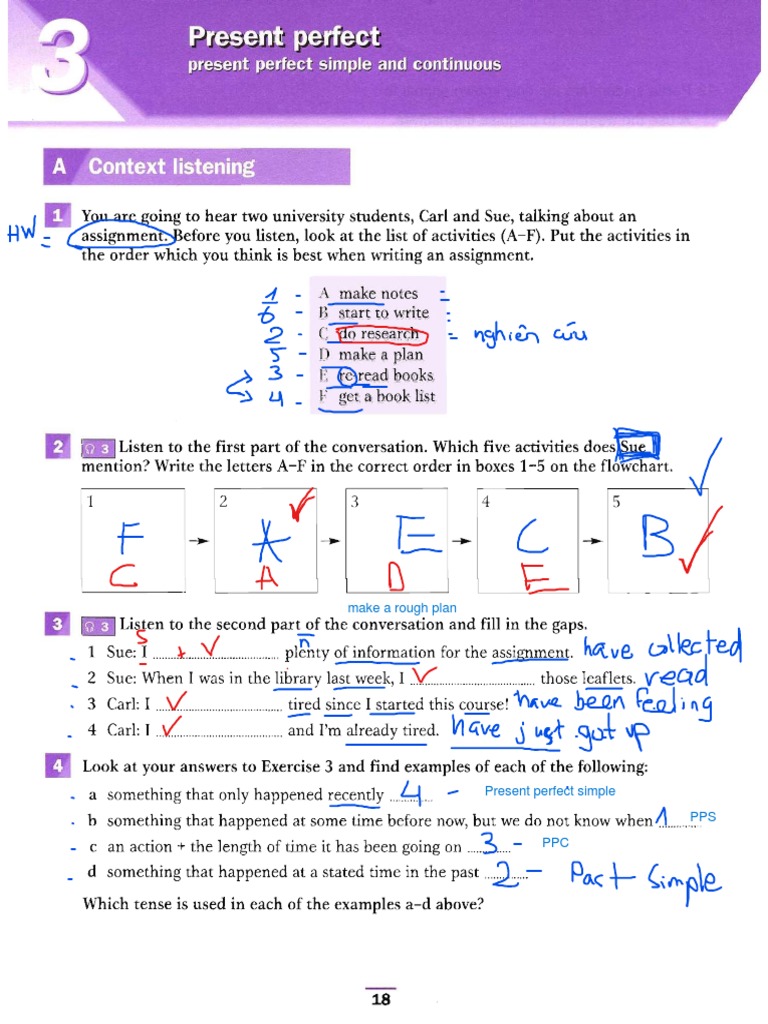 3
Present perfect
present perfect simple and continuous
A Context listening
1 You are going to hear two university students, Carl and Sue, talking about an
HW = assignment. Before you listen, look at the list of activities (A–F). Put the activities in
the order which you think is best when writing an assignment.
1 - A make notes =
6 - B start to write :
2 - C do research = nghiên cứu
5 - D make a plan
3 - E re-read books
4 - F get a book list
2 3 Listen to the first part of the conversation. Which five activities does Sue
mention? Write the letters A–F in the correct order in boxes 1–5 on the flowchart.
1 2 3 4 5
F A E C B
C A D E
make a rough plan
3 3 Listen to the second part of the conversation and fill in the gaps.
S n
1 Sue: I + plenty of information for the assignment. have collected
2 Sue: When I was in the library last week, I those leaflets. read
3 Carl: I tired since I started this course! have been feeling
4 Carl: I and I'm already tired. have just got up
4 Look at your answers to Exercise 3 and find examples of each of the following:
a something that only happened recently 4 - Present perfect simple
b something that happened at some time before now, but we do not know when 1 PPS
c an action + the length of time it has been going on 3 - PPC
d something that happened at a stated time in the past 2 - Past Simple
Which tense is used in each of the examples a–d above?
18